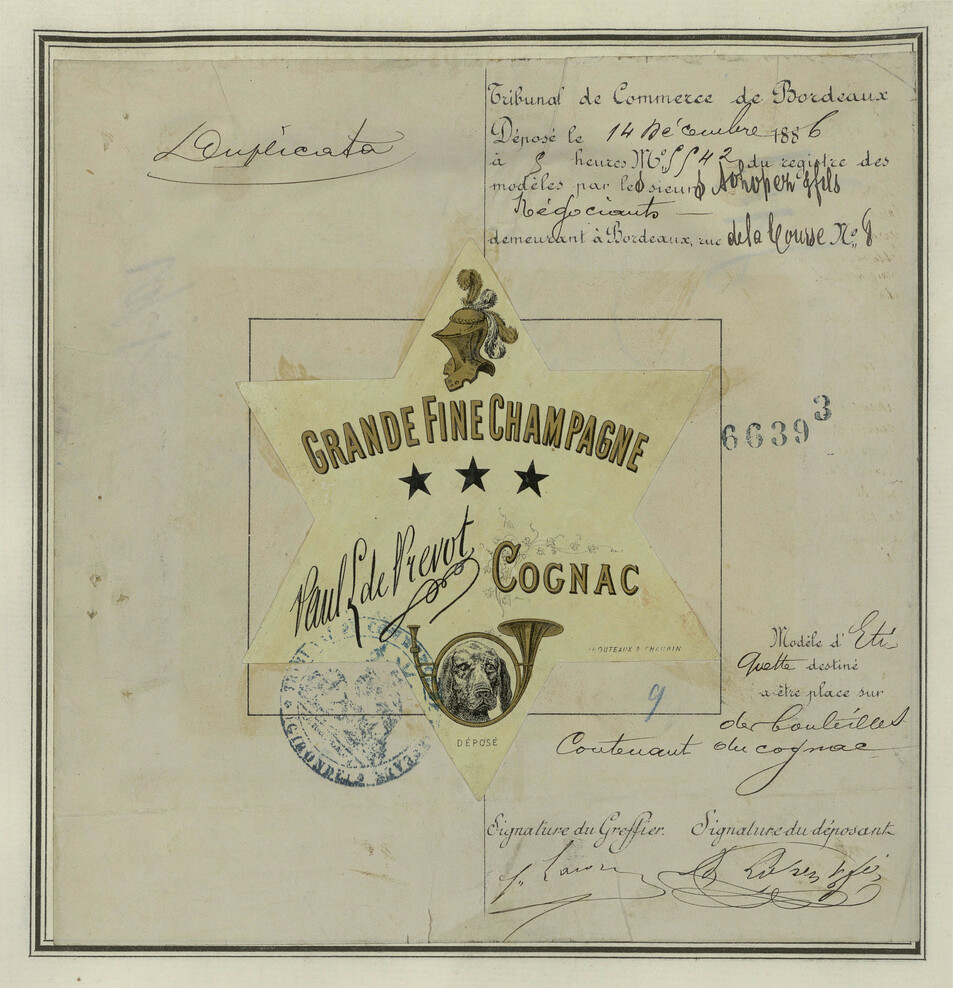 Duplicata
Tribunal de Commerce de Bordeaux
Déposé le 14 Décembre 1886
à 3 heures No 5542 du registre des
modèles par les sieurs & fils
Négociants
demeurant à Bordeaux, rue de la Course No 8
GRANDE FINE CHAMPAGNE
66393
Paul L de Prevot
COGNAC
Modèle d'Eti-
quette destiné
a être place sur
des bouteilles
Contenant du cognac
9
DÉPOSÉ
GIRONDE
Signature du Greffier. Signature du déposant